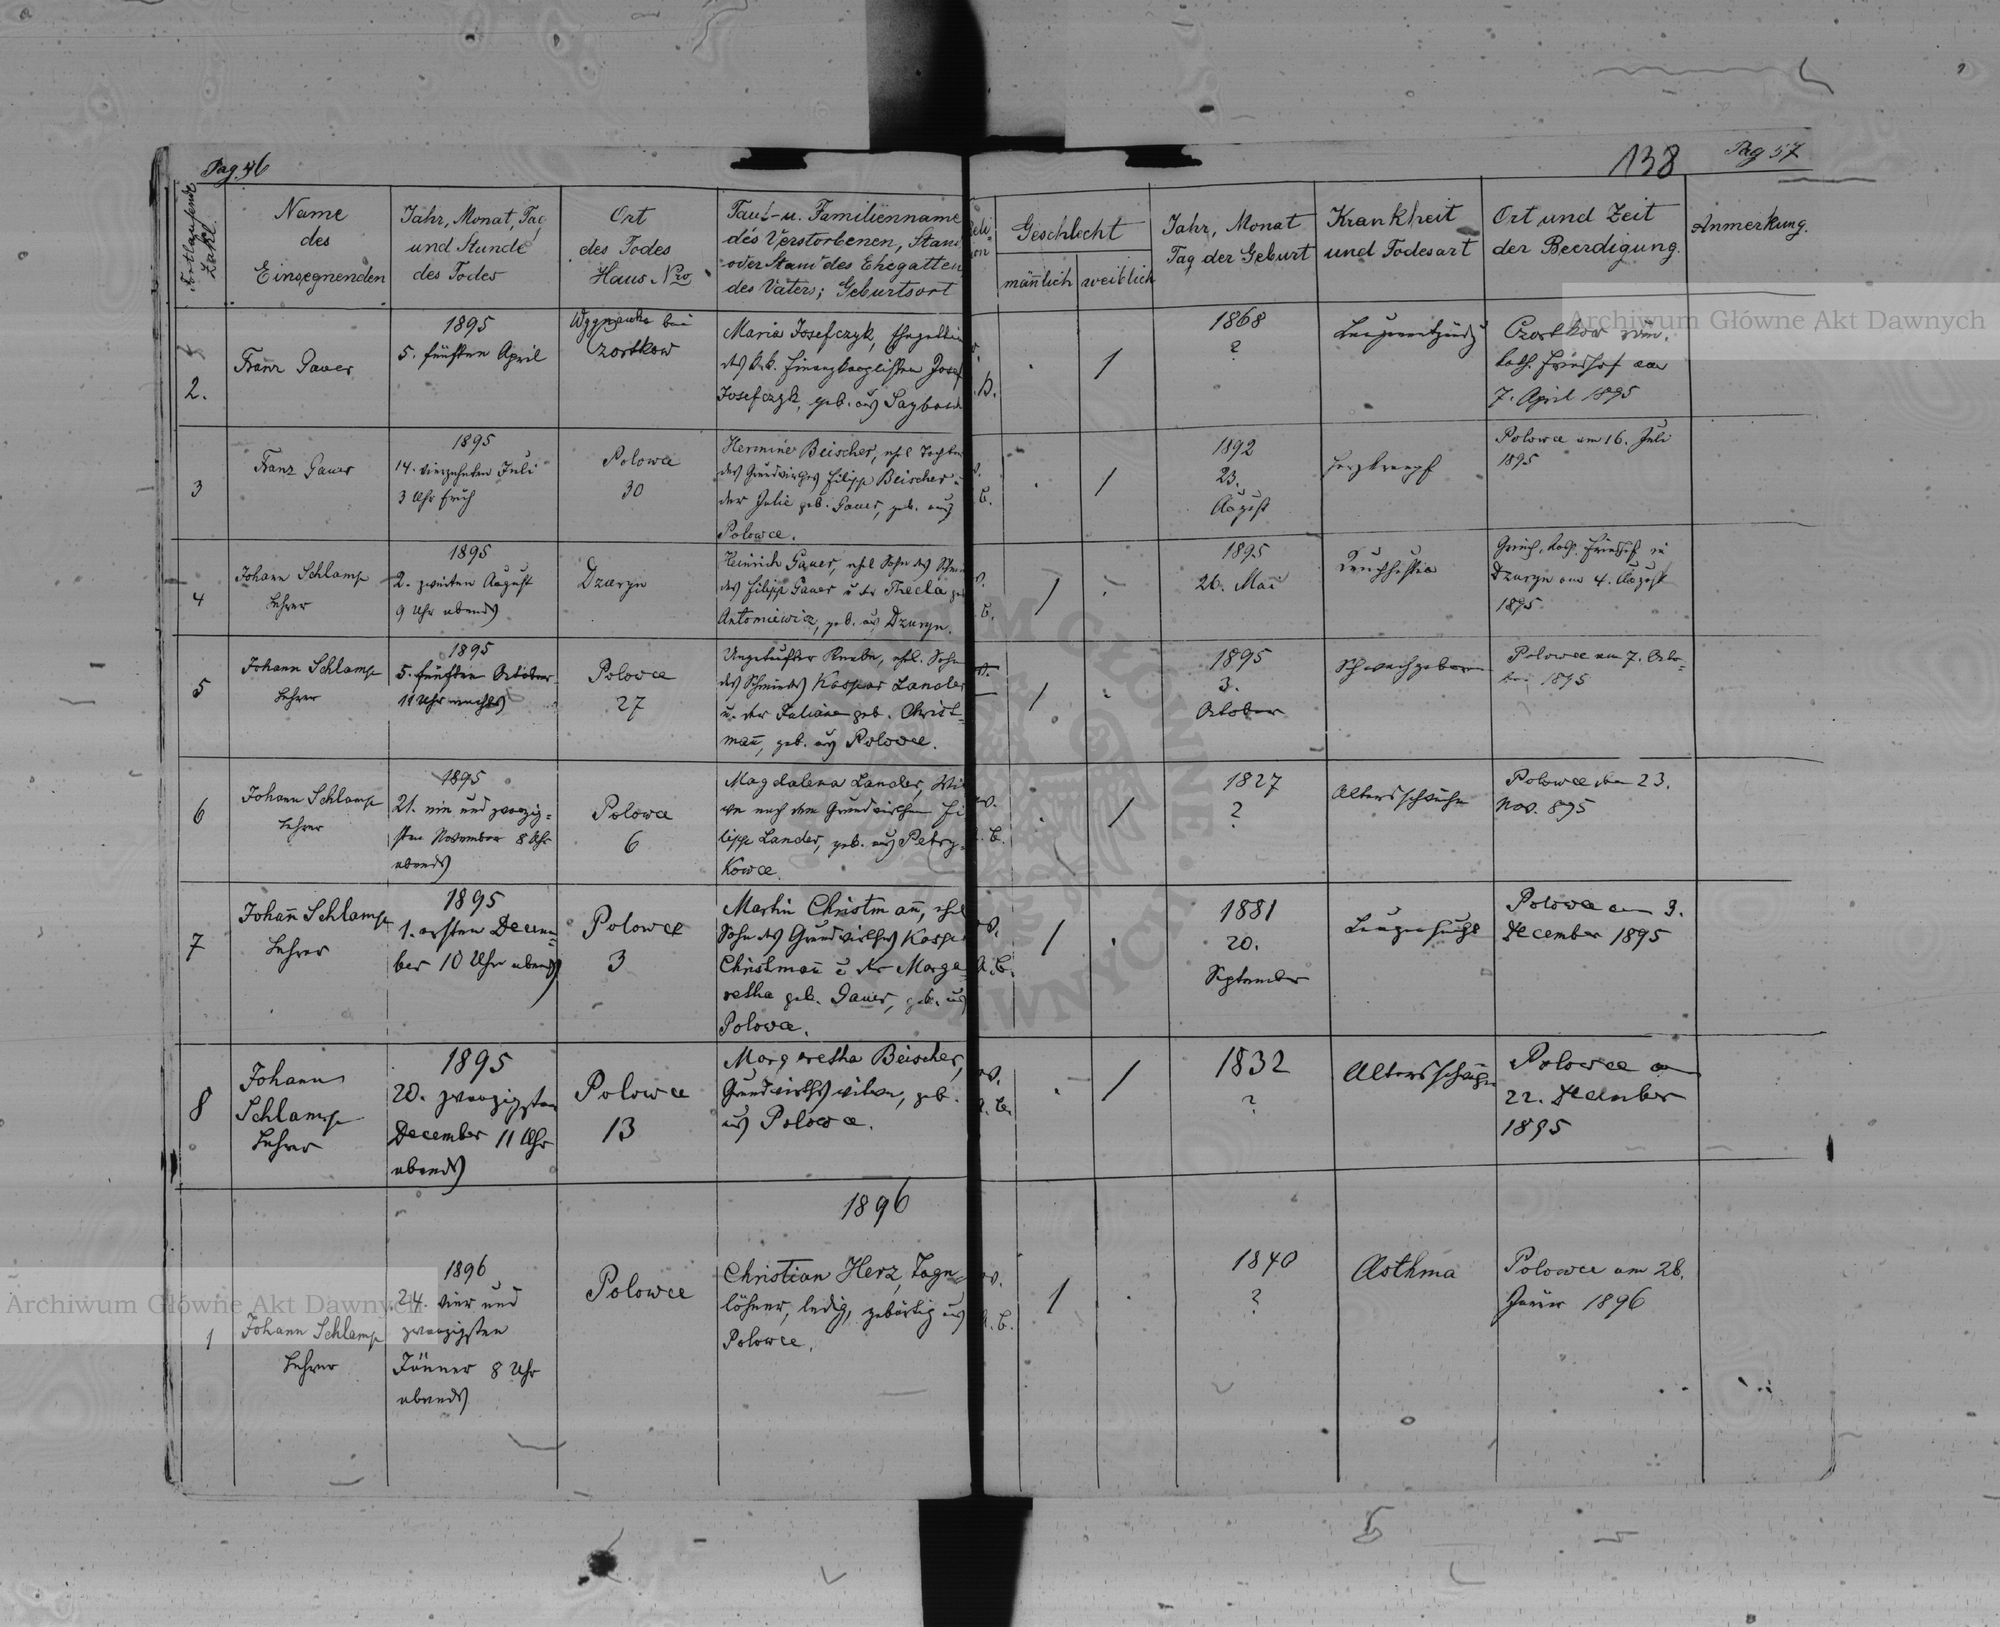 Pag. 56
138
Pag 57
Fortlaufende
Zahl.
Name
des
Einsegnenden
Jahr, Monat, Tag
und Stunde
des Todes
Ort
des Todes
Haus Nro
Tauf- u. Familienname
des Verstorbenen, Stand
oder Stand des Ehegatten
des Vaters; Geburtsort
Reli-
gion
Geschlecht
männlich
weiblich
Jahr, Monat
Tag der Geburt
Krankheit
und Todesart
Ort und Zeit
der Beerdigung.
Anmerkung.
2.
Franz Gauer
1895
5. fünften April
bei
Czortkow
Maria Josefczyk, Ehegattin
des k.k. Josef
Josefczyk, geb. aus
1
1868
?
Czortkow röm.
kath. Friedhof am
7. April 1895
3
Franz Gauer
1895
14. vierzehnten Juli
3 Uhr früh
Polowce
30
Hermine Beischer, ehel Tochter
des Grundwirthes Filipp Beischer u
der Julie geb. Gauer, geb. aus
Polowce.
1
1892
23.
August
Herzkrampf
Polowce am 16. Juli
1895
4
Johann Schlamp
Lehrer
1895
2. zweiten August
9 Uhr abends
Dzuryn
Heinrich Gauer, ehel Sohn des
des Filipp Gauer u der Thecla geb
Antoniewicz, geb. aus Dzuryn.
1
1895
26. Mai
Keuchhusten
Griech. kath. Friedhof in
Dzuryn am 4. August
1895
5
Johann Schlamp
Lehrer
1895
5. fünften October
11 Uhr nachts
Polowce
27
Ungetaufter Knabe, ehel. Sohn
des Schmieds Kaspar Lander
u. der Juliane geb. Christ-
mann, geb. aus Polowce.
1
1895
3.
October
Schwachgeboren
Polowce am 7. Octo-
ber 1895
6
Johann Schlamp
Lehrer
1895
21. ein und zwanzig-
sten November 8 Uhr
abends
Polowce
6
Magdalena Lander, Wit
we nach dem Grundwirthen Fi
lipp Lander, geb. aus Petry-
kowce.
ev.
A. C.
1
1827
?
Altersschwäche
Polowce am 23.
Nov. 895
7
Johann Schlamp
Lehrer
1895
1. ersten Decem-
ber 10 Uhr abends
Polowce
3
Martin Christmann, ehel
Sohn des Grundwirthes Kaspar
Christmann u der Marga-
retha geb. Gauer, geb. aus
Polowce.
ev.
A. C.
1
1881
20.
September
Lungensucht
Polowce am 3.
December 1895
8
Johann
Schlamp
Lehrer
1895
20. zwanzigsten
December 11 Uhr
abends
Polowce
13
Margaretha Beischer,
Grundwirthswitwe, geb.
aus Polowce.
ev.
A. C.
1
1832
?
Altersschwäche
Polowce am
22. December
1895
1896
1
Johann Schlamp
Lehrer
1896
24. vier und
zwanzigsten
Jänner 8 Uhr
abends
Polowce
Christian Herz, Tage-
löhner, ledig, gebürtig aus
Polowce.
ev.
A. C.
1
1840
?
Asthma
Polowce am 26.
Jänner 1896
Archiwum Główne Akt Dawnych
Archiwum Główne Akt Dawnych